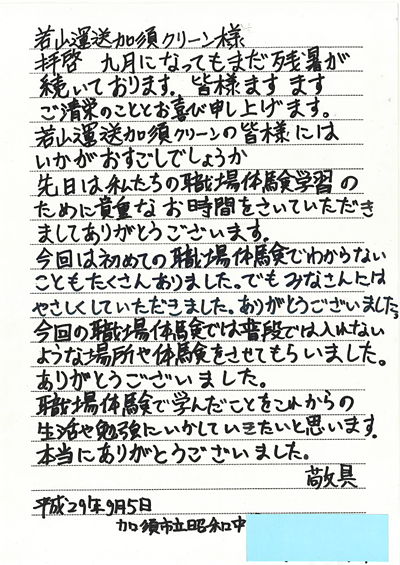 若山運送加須クリーン様
拝啓 九月になってもまだ残暑が
続いております。皆様ます ます
ご清栄のこととお喜び申し上げます。
若山運送加須クリーンの皆様には
いかがおすごしでしょうか
先日は私たちの職場体験学習の
ために貴重なお時間をさいていただき
ましてありがとうございます。
今回は初めての職場体験でわからない
こともたくさんありました。でもみなさんには
やさしくしていただきました。ありがとうございました。
今回の職場体験では普段では入れない
ような場所や体験をさせてもらいました。
ありがとうございました。
職場体験で学んだことをこれからの
生活や勉強にいかしていきたいと思います。
本当にありがとうございました。
敬具
平成29年9月5日
加須市立昭和中